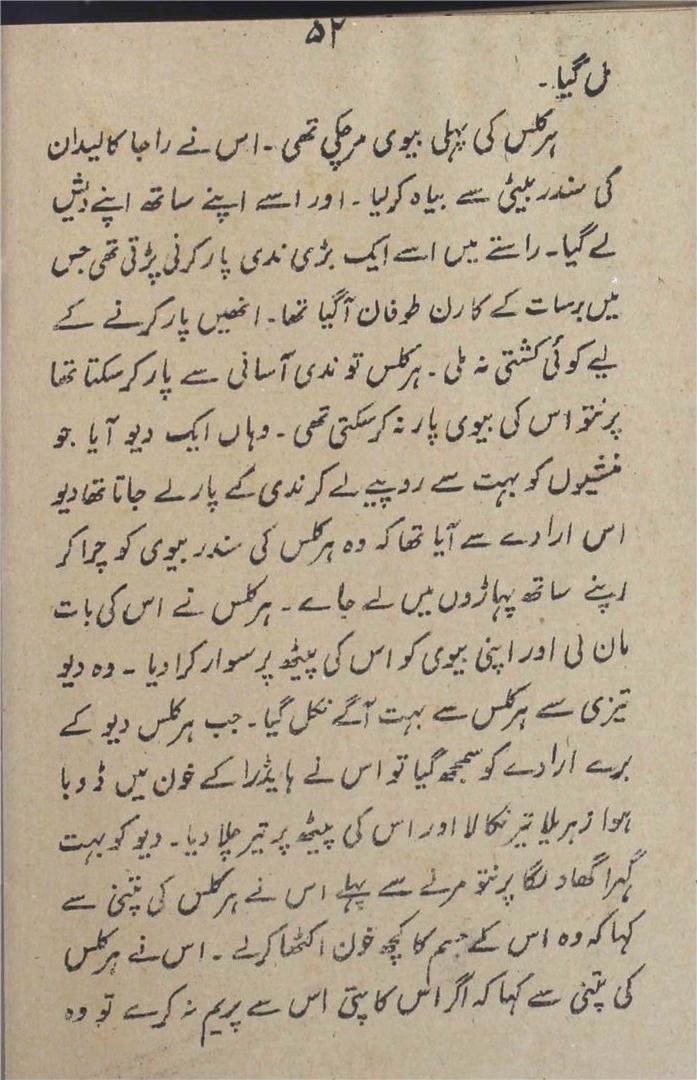 ۵۲
مل گیا۔
ہرکلس کی پہلی بیوی مرچکی تھی۔ اس نے راجا کالیدان
کی سندر بیٹی سے بیاہ کرلیا۔ اور اسے اپنے ساتھ اپنے دیش
لے گیا۔ راستے میں اسے ایک بڑی ندی پار کرنی پڑتی تھی جس
میں برسات کے کارن طوفان آگیا تھا۔ انھیں پار کرنے کے
لیے کوئی کشتی نہ ملی۔ ہرکلس تو ندی آسانی سے پار کرسکتا تھا
پرنتو اس کی بیوی پار نہ کرسکتی تھی۔ وہاں ایک دیو آیا جو
منشیوں کو بہت سے روپیے لے کر ندی کے پار لے جاتا تھا دیو
اس ارادے سے آیا تھا کہ وہ ہرکلس کی سندر بیوی کو چرا کر
اپنے ساتھ پہاڑوں میں لے جاے۔ ہرکلس نے اس کی بات
مان لی اور اپنی بیوی کو اس کی پیٹھ پر سوار کرا دیا۔ وہ دیو
تیزی سے ہرکلس سے بہت آگے نکل گیا۔ جب ہرکلس دیو کے
برے ارادے کو سمجھ گیا تو اس نے ہایڈرا کے خون میں ڈوبا
ہوا زہریلا تیر نکالا اور اس کی پیٹھ پر تیر چلا دیا۔ دیو کو بہت
گہرا گھاو لگا پرنتو مرنے سے پہلے اس نے ہرکلس کی پتنی سے
کہا کہ وہ اس کے جسم کا کچھ خون اکٹھا کرلے۔ اس نے ہرکلس
کی پتنی سے کہا کہ اگر اس کا پتی اس سے پریم نہ کرے تو وہ